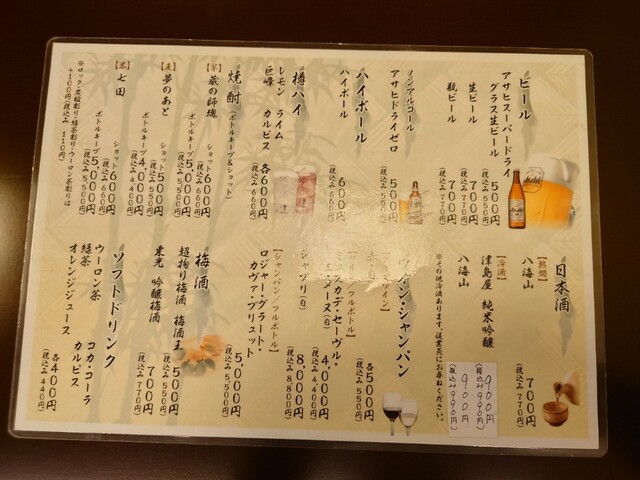 ビール
アサヒスーパードライ
グラス生ビール
500円
(税込み 550円)
生ビール
700円
(税込み 770円)
瓶ビール
700円
(税込み 770円)
ノンアルコール
アサヒドライゼロ
500円
ハイボール
ハイボール
600円
(税込み 660円)
樽ハイ
レモン ライム
巨峰 カルピス
各600円
(税込み 各660円)
焼酎(ボトルキープ&ショット)
【芋】蔵の師魂
ショット 600円
(税込み 660円)
ボトルキープ 5,000円
(税込み 5,500円)
【麦】夢のあと
ショット 500円
(税込み 550円)
ボトルキープ 4,000円
(税込み 4,400円)
七田
ショット 600円
(税込み 660円)
ボトルキープ 5,000円
(税込み 5,500円)
※ロック・炭酸割り・緑茶割り・ウーロン茶割りは
+100円(税込み 110円)
日本酒
【熱燗】
八海山
700円
(税込み 770円)
【冷酒】
津島屋 純米吟醸
900円
(税込み990円)
八海山
900円
(税込み990円)
※その他冷酒あります。従業員にお尋ねください。
ワイン・シャンパン
各500円
(税込み 550円)
フルボトル】
ミュスカデ・セーヴル・
4,000円
(税込み 4,400円)
シャブリ(白)
8,000円
(税込み 8,800円)
【シャンパン/フルボトル】
ロジャー・グラート・
カヴァ・ブリュット
5,000円
(税込み 5,500円)
梅酒
超拘り梅酒 梅酒王
500円
(税込み 550円)
東光 吟醸梅酒
700円
(税込み 770円)
ソフトドリンク
ウーロン茶 コカ・コーラ
緑茶 カルピス
オレンジジュース
各400円
(税込み 440円)